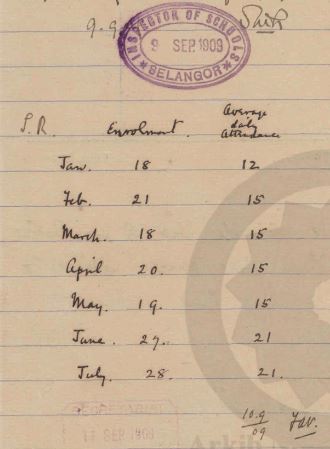 9.9
INSPECTOR OF SCHOOLS
9 SEP. 1909
SELANGOR
S.R. Enrolment. Average daily attendance
Jan. 18 12
Feb. 21 15
March. 18 15
April 20. 15
May. 19. 15
June. 27. 21
July. 28. 21.
10.9
09
11 SEP 1909
Arkib